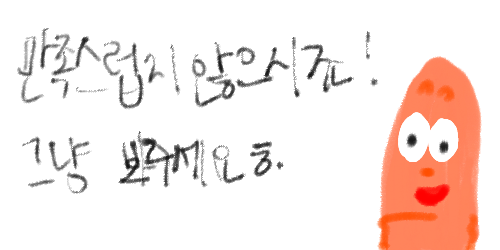 만족스럽지 않으시죠!
그냥 봐주세요ㅎ.